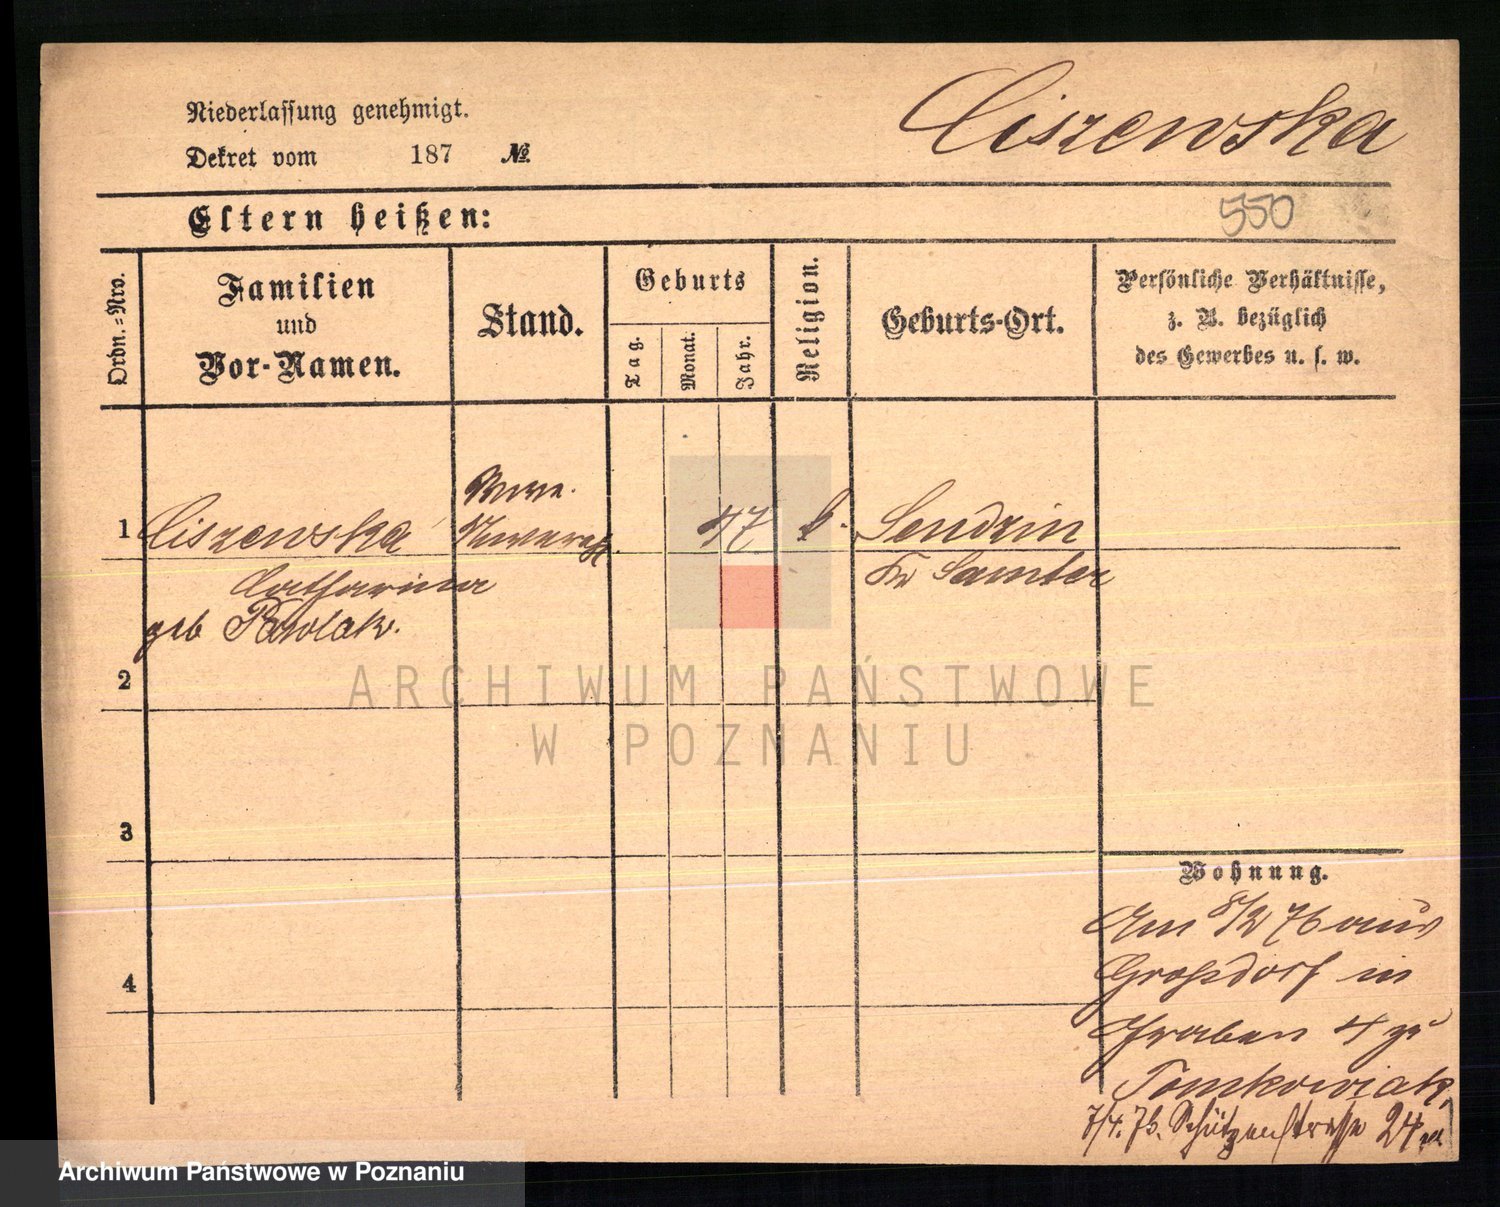 Niederlassung genehmigt.
Ciszewska
Dekret vom 187 №
Eltern heißen:
550
Ordn.=Nro.
Familien
und
Vor-Namen.
Stand.
Geburts
Tag.
Monat.
Jahr.
Religion.
Geburts-Ort.
Persönliche Verhältnisse,
z. B. bezüglich
des Gewerbes u. s. w.
1 Ciszewska 47 Sendzin
Catharina Kr Samter
geb Pawlak.
2
ARCHIWUM PAŃSTWOWE
W POZNANIU
3
Wohnung.
Am 8/2 76 aus
4 Großdorf in
Graben 4 zu
Tomkowiak,
7/4. 76. Schützenstrasse 24
Archiwum Państwowe w Poznaniu